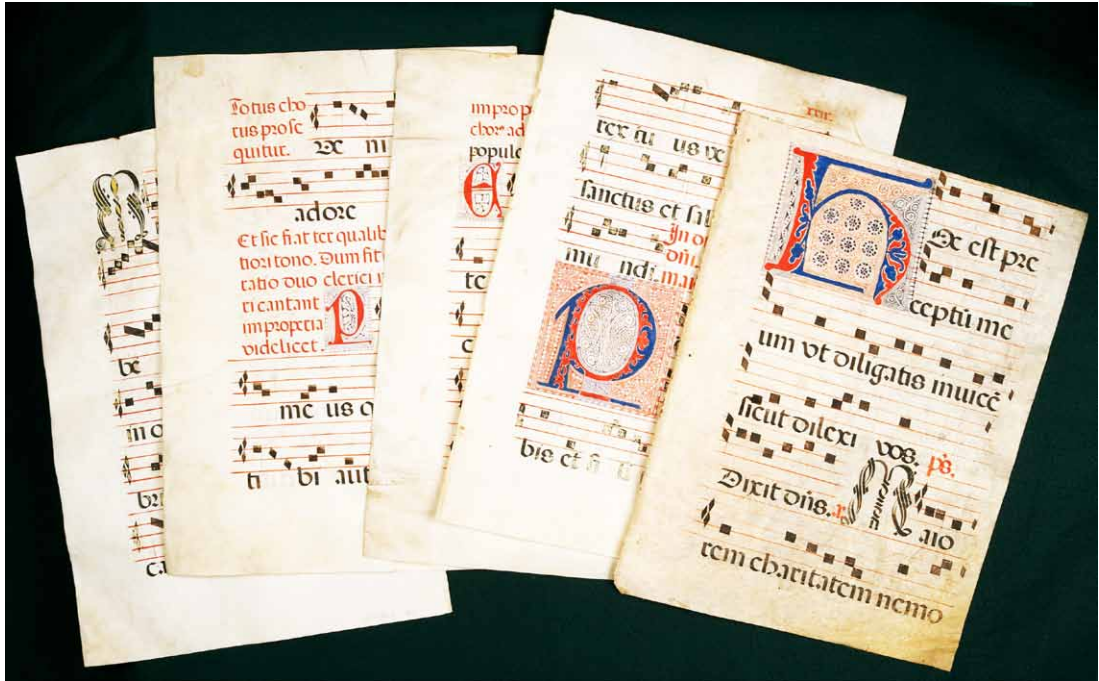 be
in o
bri
ca
Totus cho
rus prose
quitur. Ve ni
adore
Et sic fiat ter qualib
tiori tono. Dum fit
ratio duo clerici
ti cantant
impropria
videlicet. P
me us q
ti bi aut
improp
chor ad
popule
te
c
rex tu us ve
sanctus et sal
In o
mu ndi. mar
P
bis et
H Oc est pre
ceptū me
um vt diligatis inuicē
sicut dilexi vos. ps.
Dixit dn̄s. M aio
rem charitatem nemo